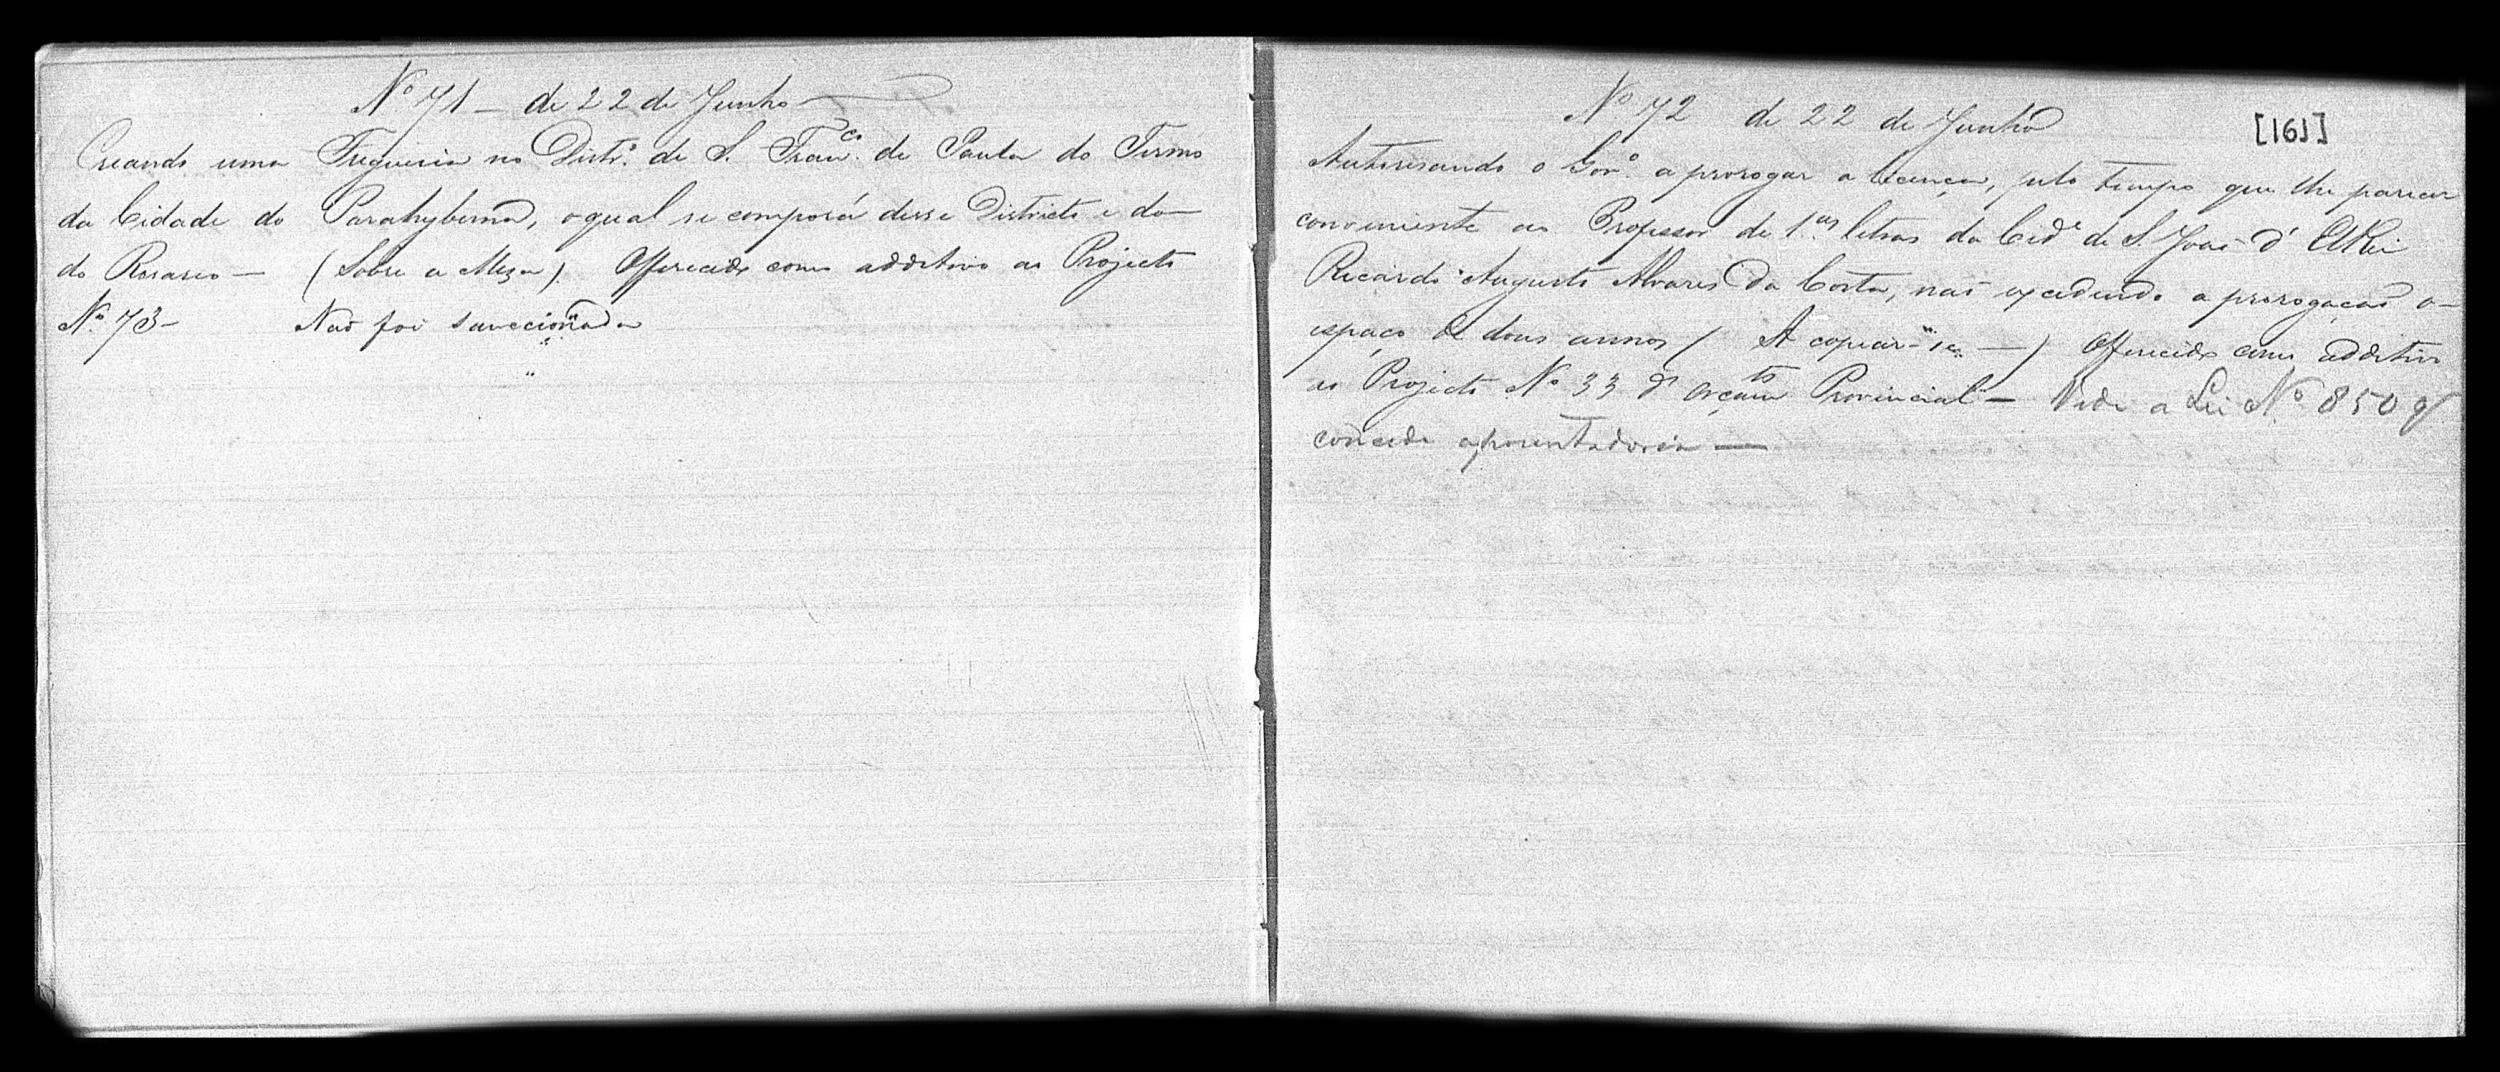 Nº 71 — de 22 de Junho —
Creando uma Freguesia no Distrº. de S. Franco. de Paula do Termo
da Cidade do Parahybuna, o qual se comporá desse Districto e do
do Rosario — (Sobre a Meza). Offerecido como additivo ao Projecto
Nº 73 — Não foi sanccionada
Nº 72 de 22 de Junho
[161]
Autorisando o Govº. a prorogar a licença, pelo tempo que lhe parecer
conveniente ao Professor de 1.as letras da Cidº de S. João d'El Rei
Ricardo Augusto Alvares da Costa, não excedendo a prorogação o
espaço de dous annos ( A copiar-se — ) Offerecido como additivo
ao Projecto Nº 33 d' Orçamto Provincial — Vide a Lei Nº 850 q
concede aposentadoria —